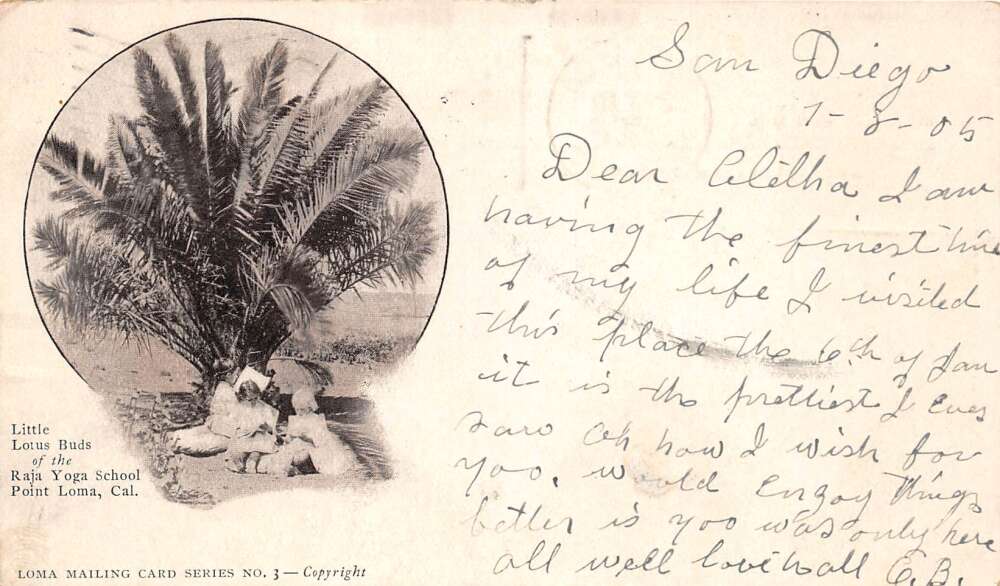 San Diego
1-8-05
Dear Aletha I am
having the finest time
of my life I visited
this place the 6th of Jan
it is the prettiest I ever
saw Oh how I wish for
yoo. would enjoy things
better is yoo was only here
all well love to all E.B.
Little
Lotus Buds
of the
Raja Yoga School
Point Loma, Cal.
LOMA MAILING CARD SERIES NO. 3 — Copyright